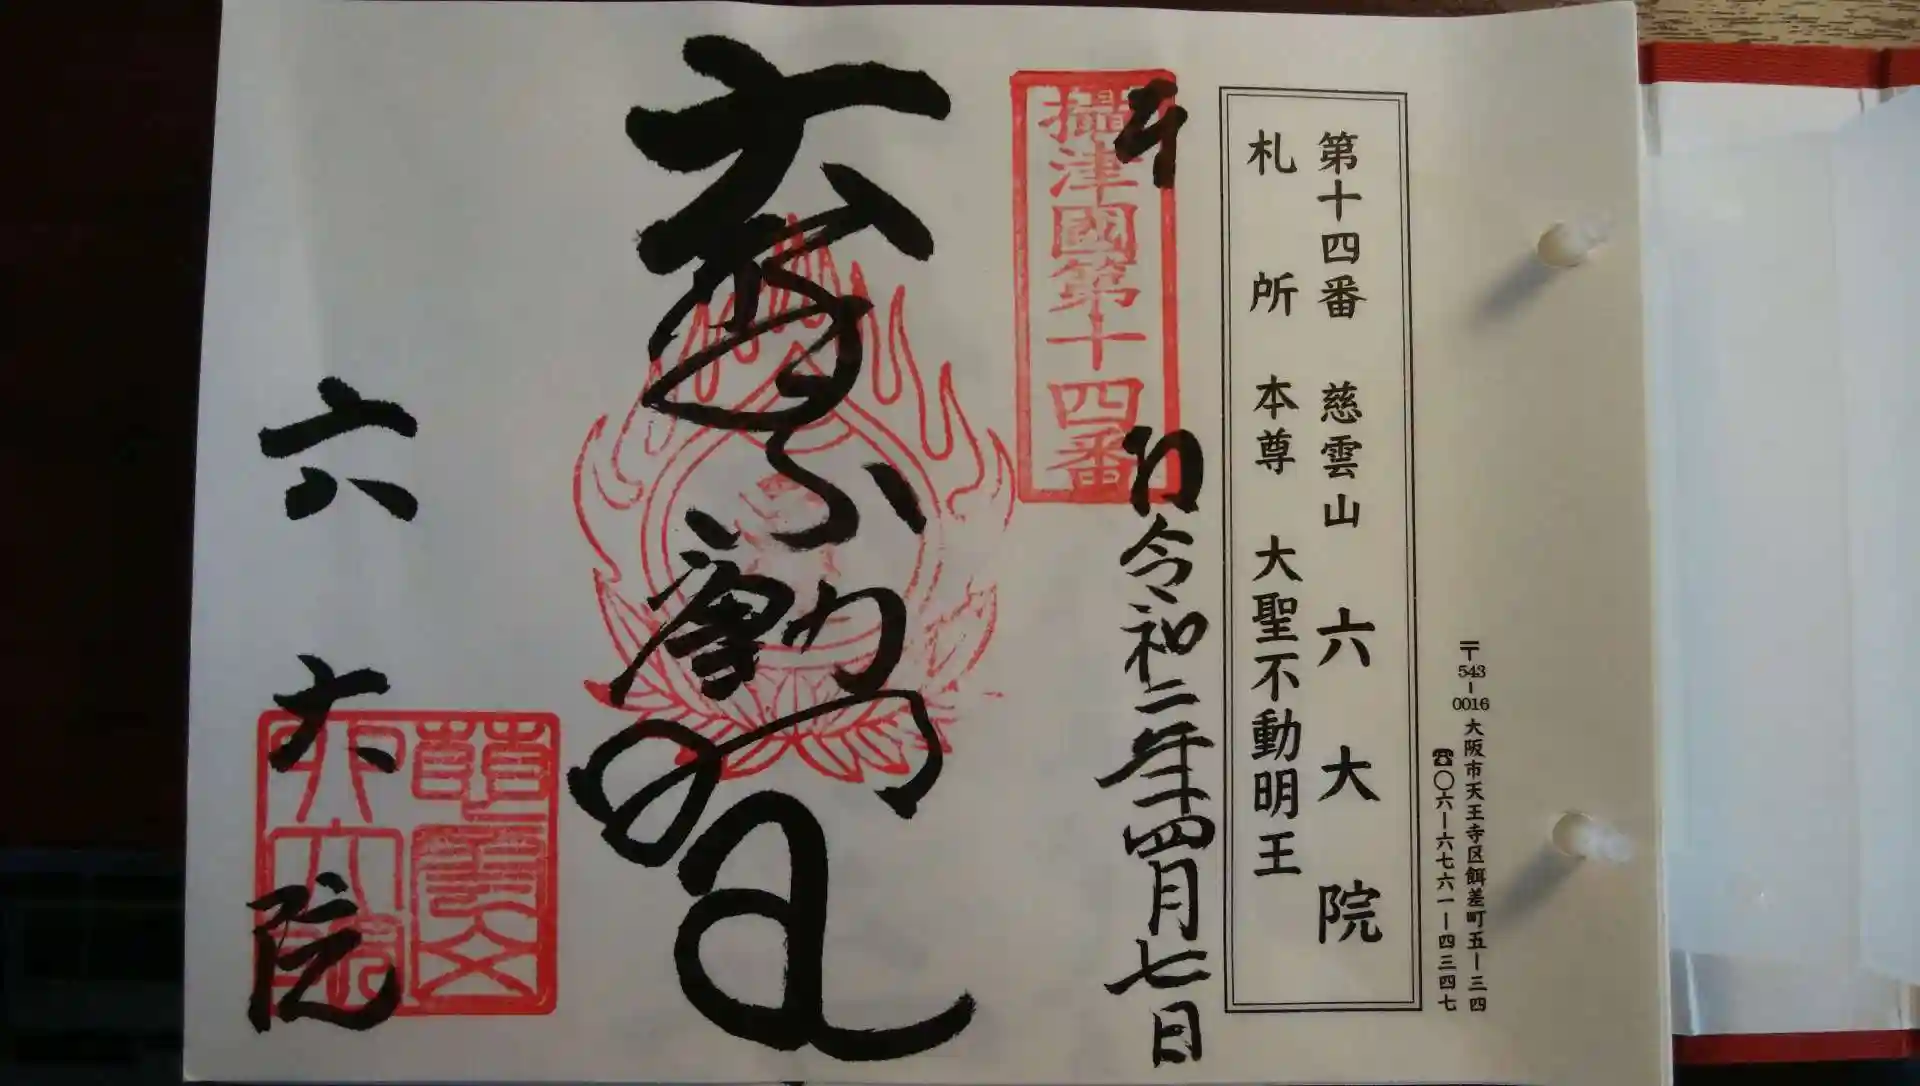 〒543-0016 大阪市天王寺区餌差町五ー三四
☎〇六ー六七六一ー四三四七
第十四番 慈雲山 六大院
札所 本尊 大聖不動明王
奉
拝
令和二年十四月七日
攝津國第十四番
大聖不動明王
六大院